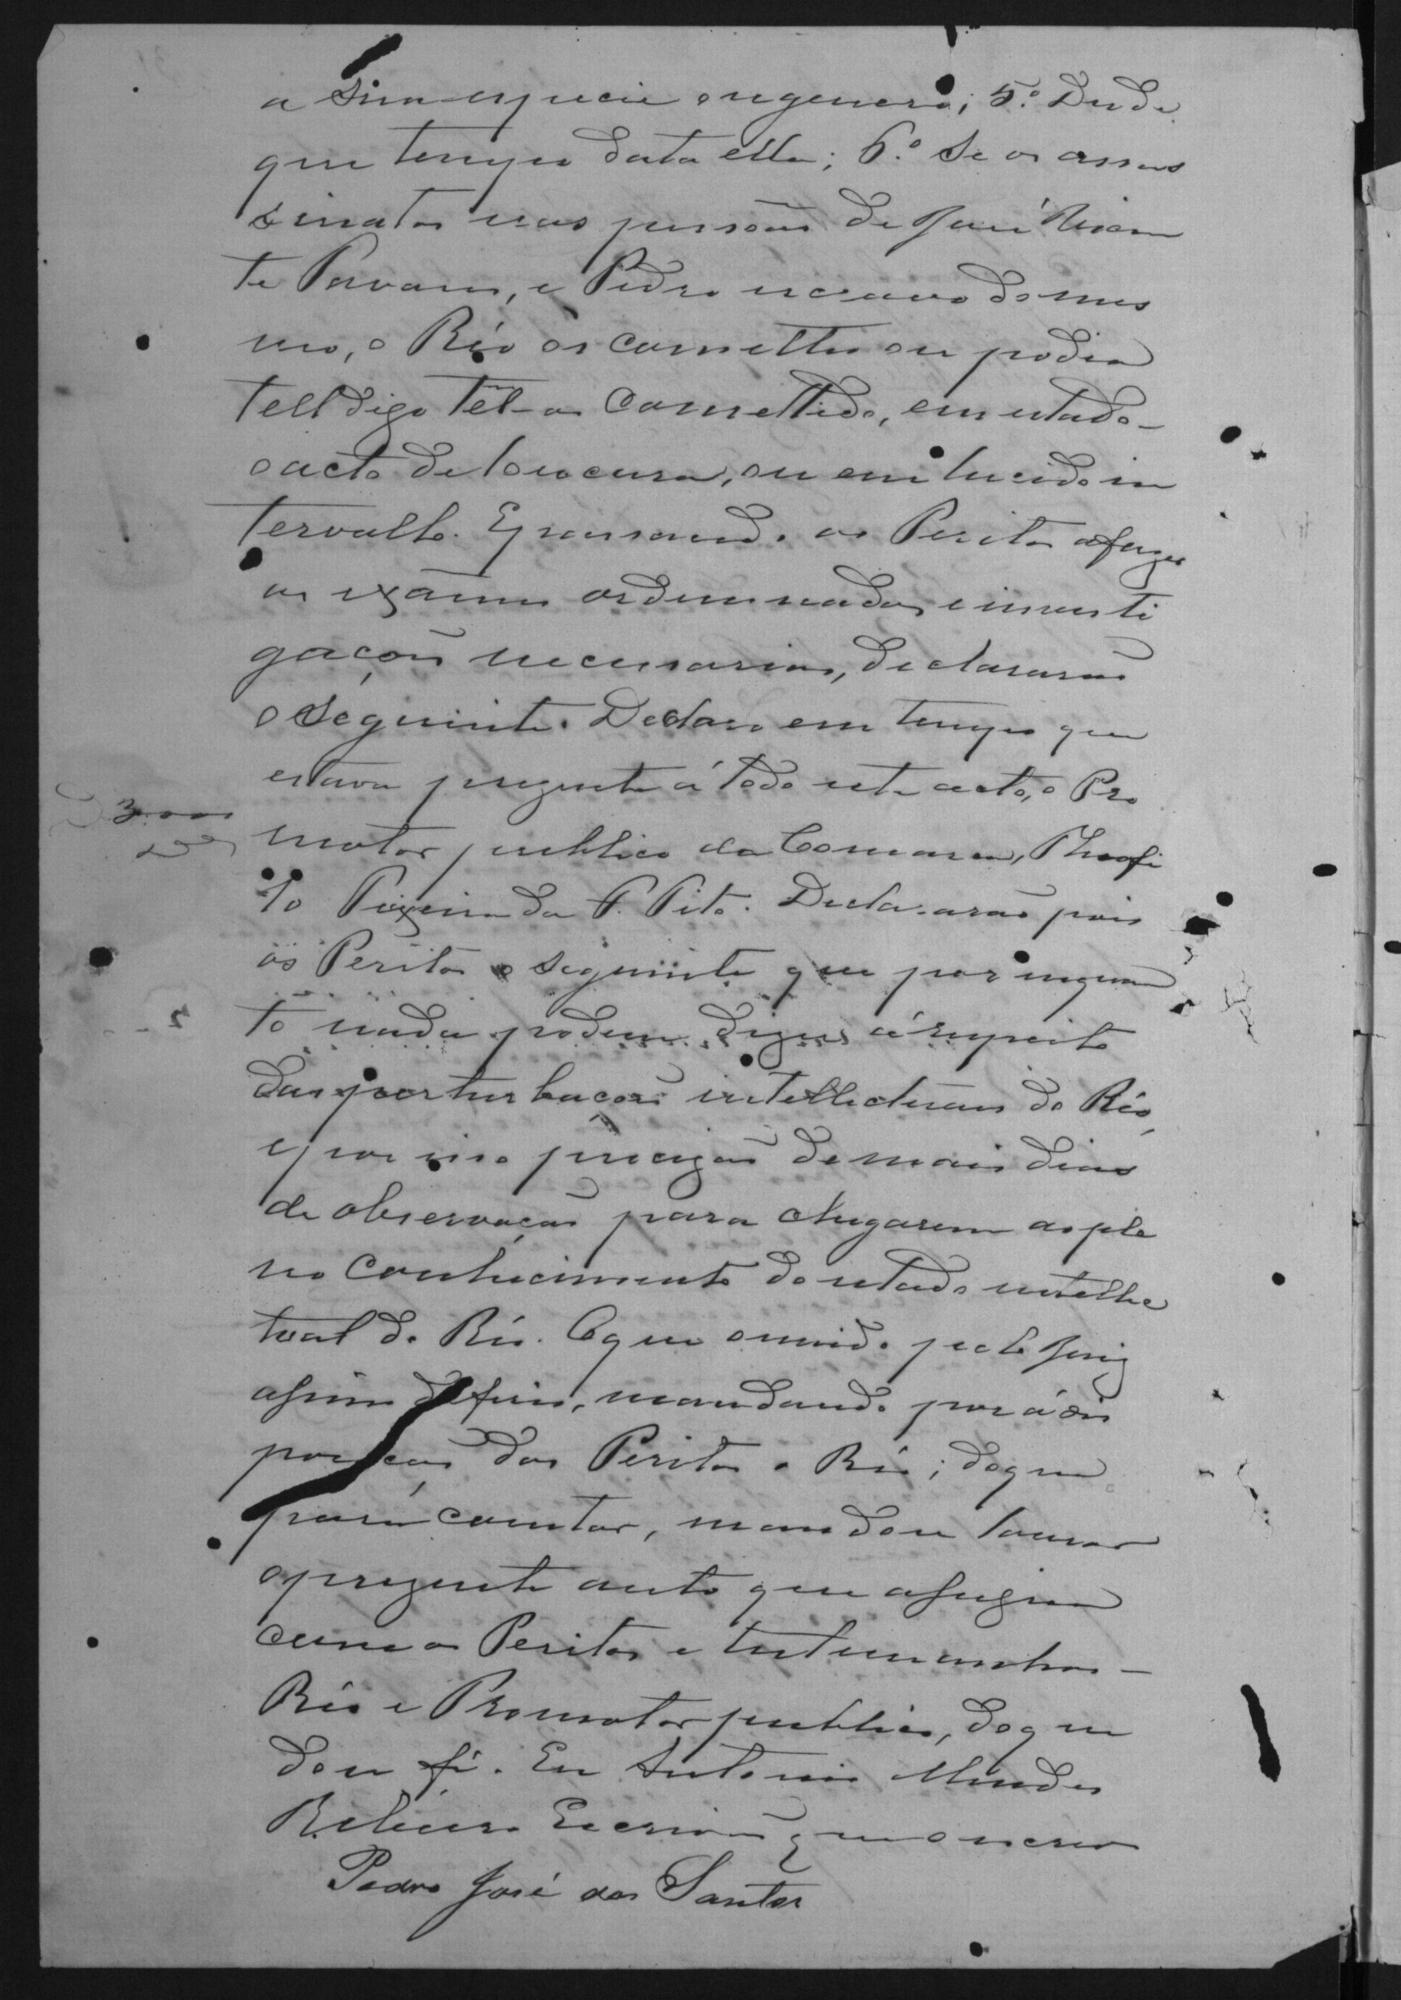 a sua especie ou genero; 5.º Desde
que tempo data ella; 6.º Se os assas
sinatos nas pessôas de José Vicen
te Pavam, e Pedro escravo do mes
mo, o Réo os cometteu ou podia
tell digo têl-os comettido, em estado
o acto de loucura, ou em lucido in
tervallo. E passando os Peritos a fazer
os exames ordenados e investi
gaçoẽs necessarias, declararaõ
o seguinte. Declaro em tempo que
estava prezente á todo este acto, o Pro
motor publico da Comarca, Theofi
to da P. Pito. Declararaõ pois
os Peritos o seguinte que por inquan
to nada podem dizer á respeito
das perturbaçoẽs intellectuaes do Réo,
e por isso precizaõ de mais dias
de observaçaõ para chegarem ao ple
no conhecimento do estado intellec
tual do Réo. O que ouvido pelo Juiz
assim deferio, mandando por á dis
posiçaõ dos Peritos o Réo; do que
para constar, mandou lavrar
o prezente auto que assigna
com os Peritos e testemunhas
Réo e Promotor publico, do que
dou fé. Eu Antonio Mendes
Ribeiro Escrivaõ que o escrevi
Pedro José dos Santos